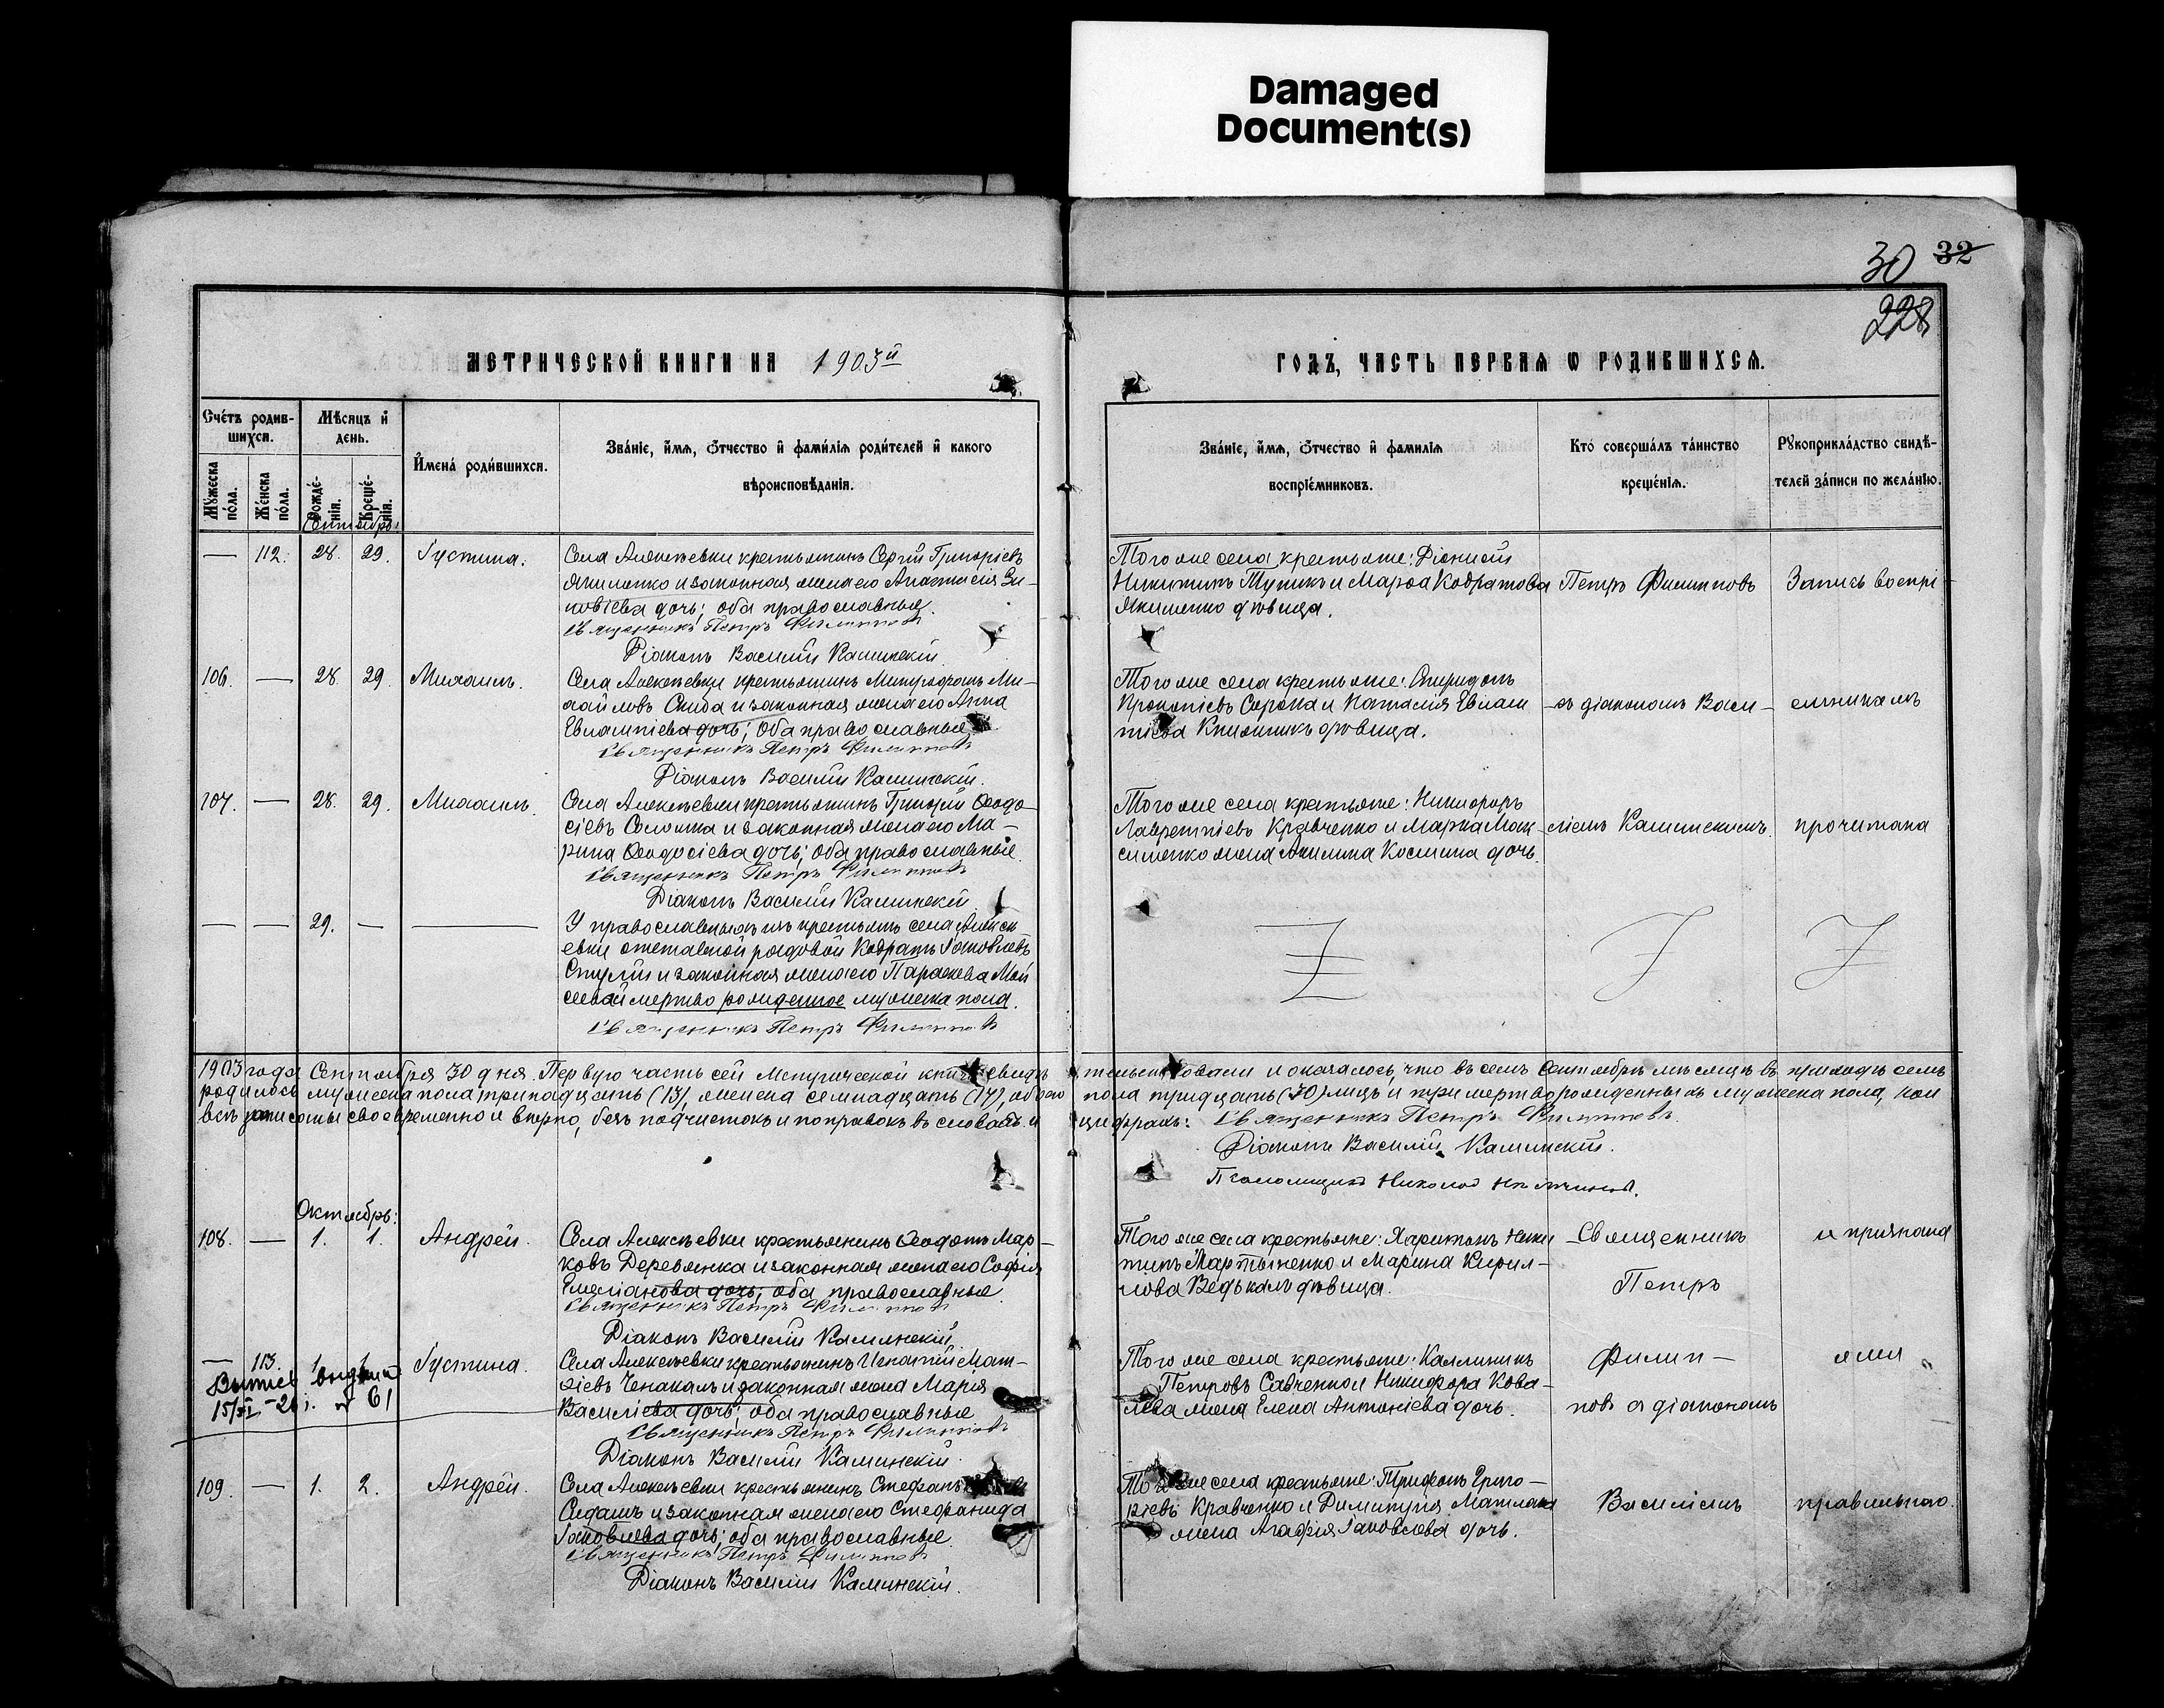 Damaged
Document(s)
30 32
228
МЕТРИЧЕСКОЙ КНИГИ НА 1903й
ГОДЪ, ЧАСТЬ ПЕРВАЯ Ѡ РОДИВШИХСЯ.
Счетъ родив-
шихся.
Мужеска пола.
Женска пола.
Мѣсяцъ и
день.
Рожде-
нія.
Креще-
нія.
Имена родившихся.
Званіе, имя, отчество и фамилія родителей и какого
вѣроисповѣданія.
Званіе, имя, отчество и фамилія
воспріемниковъ.
Кто совершалъ таинство
крещенія.
Рукоприкладство свидѣ-
телей записи по желанію.
Сентябрь
— 112. 28. 29. Іустина.
Села Алексѣевки крестьянинъ Сергій Григоріевъ
Якименко и законная жена его Анастасія Зи-
новіева дочь; оба православные.
Священникъ Петръ Филипповъ
Діаконъ Василій Калинскій.
Того же села крестьяне: Діонисій
Никитинъ Тупикъ и Марѳа Кодратова
Якименко дѣвица.
Петръ Филипповъ
Запись воспрі-
106. — 28. 29. Михаилъ.
Села Алексѣевки крестьянинъ Митрофанъ Ми-
хайловъ Скида и законная жена его Анна
Евлампіева дочь; оба православные
Священникъ Петръ Филипповъ
Діаконъ Василій Калинскій.
Того же села крестьяне: Спиридонъ
Прокопіевъ Сорока и Наталія Евлам
піева дѣвица.
-съ діакономъ Васи-
емникамъ
107. — 28. 29. Михаилъ.
Села Алексѣевки крестьянинъ Григорій Ѳеодо-
сіевъ Соломка и законная жена его Ма-
рина Ѳеодосіева дочь; оба православные.
Священникъ Петръ Филипповъ
Діаконъ Василій Калинскій.
Того же села крестьяне: Никифоръ
Лаврентіевъ Кравченко и Марка Мак-
сименко жена Акилина Космина дочь.
ліемъ Калинскимъ.
прочитана
— — 29. — —
У православныхъ изъ крестьянъ села Алексѣ
евки отставной рядовой Кодратъ Іаковлевъ
и законная жена его Параскева Мои
сеева мертво рожденное мужеска пола.
Священникъ Петръ Филипповъ
1903 года Сентября 30 дня. Первую часть сей Метрической книги свидѣтельствовали и оказалось, что въ семъ Сентябрѣ мѣсяцѣ въ приходѣ семъ
родилось мужеска пола тринадцать (13), женска семнадцать (17), обоего пола тридцать (30) лицъ и три мертворожденныхъ мужеска пола, кои
всѣ записаны своевременно и вѣрно, безъ подчистокъ и поправокъ въ словахъ и цифрахъ: Священникъ Петръ Филипповъ.
Діаконъ Василій Калинскій.
Псаломщикъ Николай
Октябрь:
108. — 1. 1. Андрей.
Села Алексѣевки крестьянинъ Ѳеодотъ Мар-
ковъ Деревянка и законная жена его Софія
Емеліанова дочь; оба православные.
Священникъ Петръ Филипповъ
Діаконъ Василій Калинскій.
Того же села крестьяне: Харитонъ Ники
тинъ Мартыненко и Марина Кирил-
лова дѣвица.
Священникъ
Петръ
и признана
— 113. 1. 1. Іустина.
15/XI-20 г. № 61
Села Алексѣевки крестьянинъ Игнатій Мат-
ѳіевъ Чепакалъ и законная жена Марія
Василіева дочь; оба православные
Священникъ Петръ Филипповъ
Діаконъ Василій Калинскій.
Того же села крестьяне: Каллиникъ
Петровъ Савченко и Никифора Кова-
лева жена Елена Антоніева дочь.
Филип-
повъ съ діакономъ
109. — 1. 2. Андрей.
Села Алексѣевки крестьянинъ Стефанъ
и законная жена его Стефанида
Іаковлева дочь; оба православные.
Священникъ Петръ Филипповъ
Діаконъ Василій Калинскій.
Того же села крестьяне: Трифонъ Григо-
ріевъ Кравченко и Димитрія
жена Агафія Іаковлева дочь.
Василіемъ
правильною.